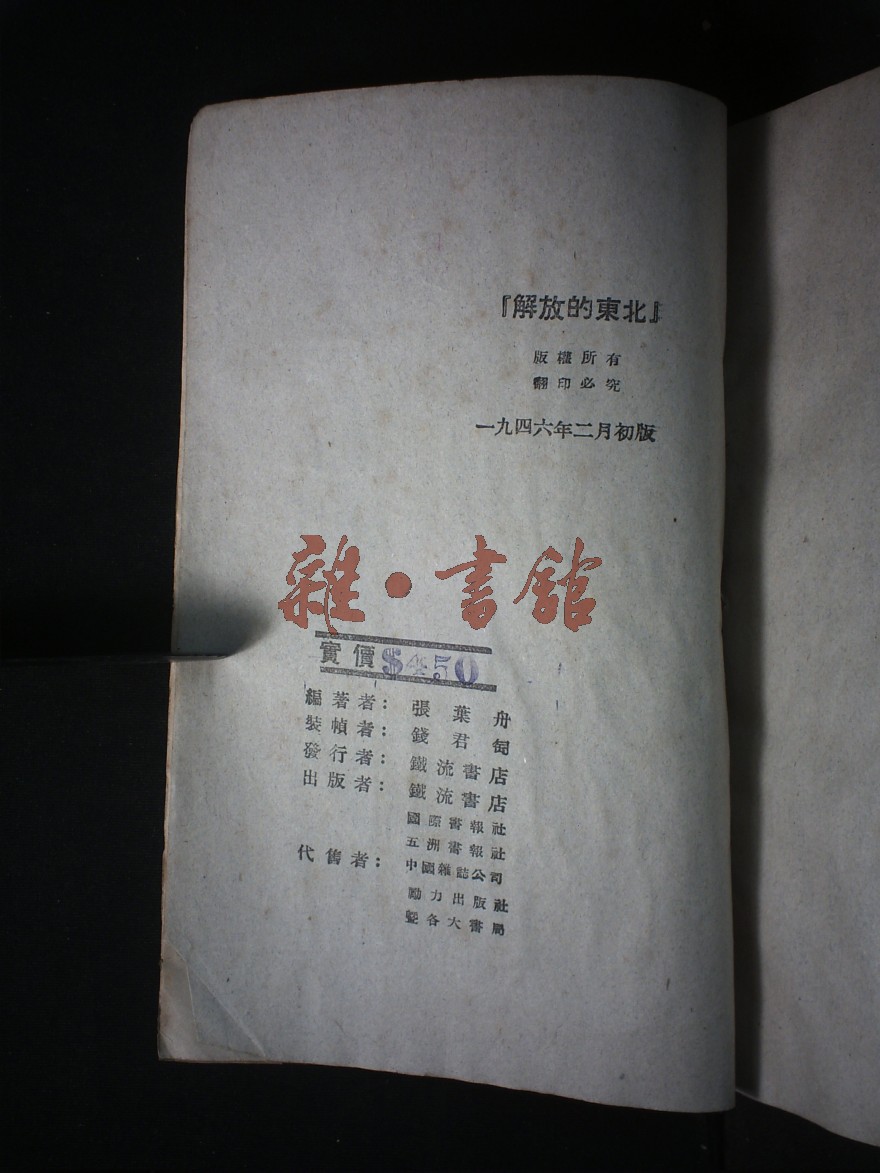 『解放的東北』
版權所有
翻印必究
一九四六年二月初版
雜·書館
實價 $450
編著者：張葉舟
裝幀者：錢君匋
發行者：鐵流書店
出版者：鐵流書店
國際書報社
五洲書報社
代售者：中國雜誌公司
勵力出版社
暨各大書局